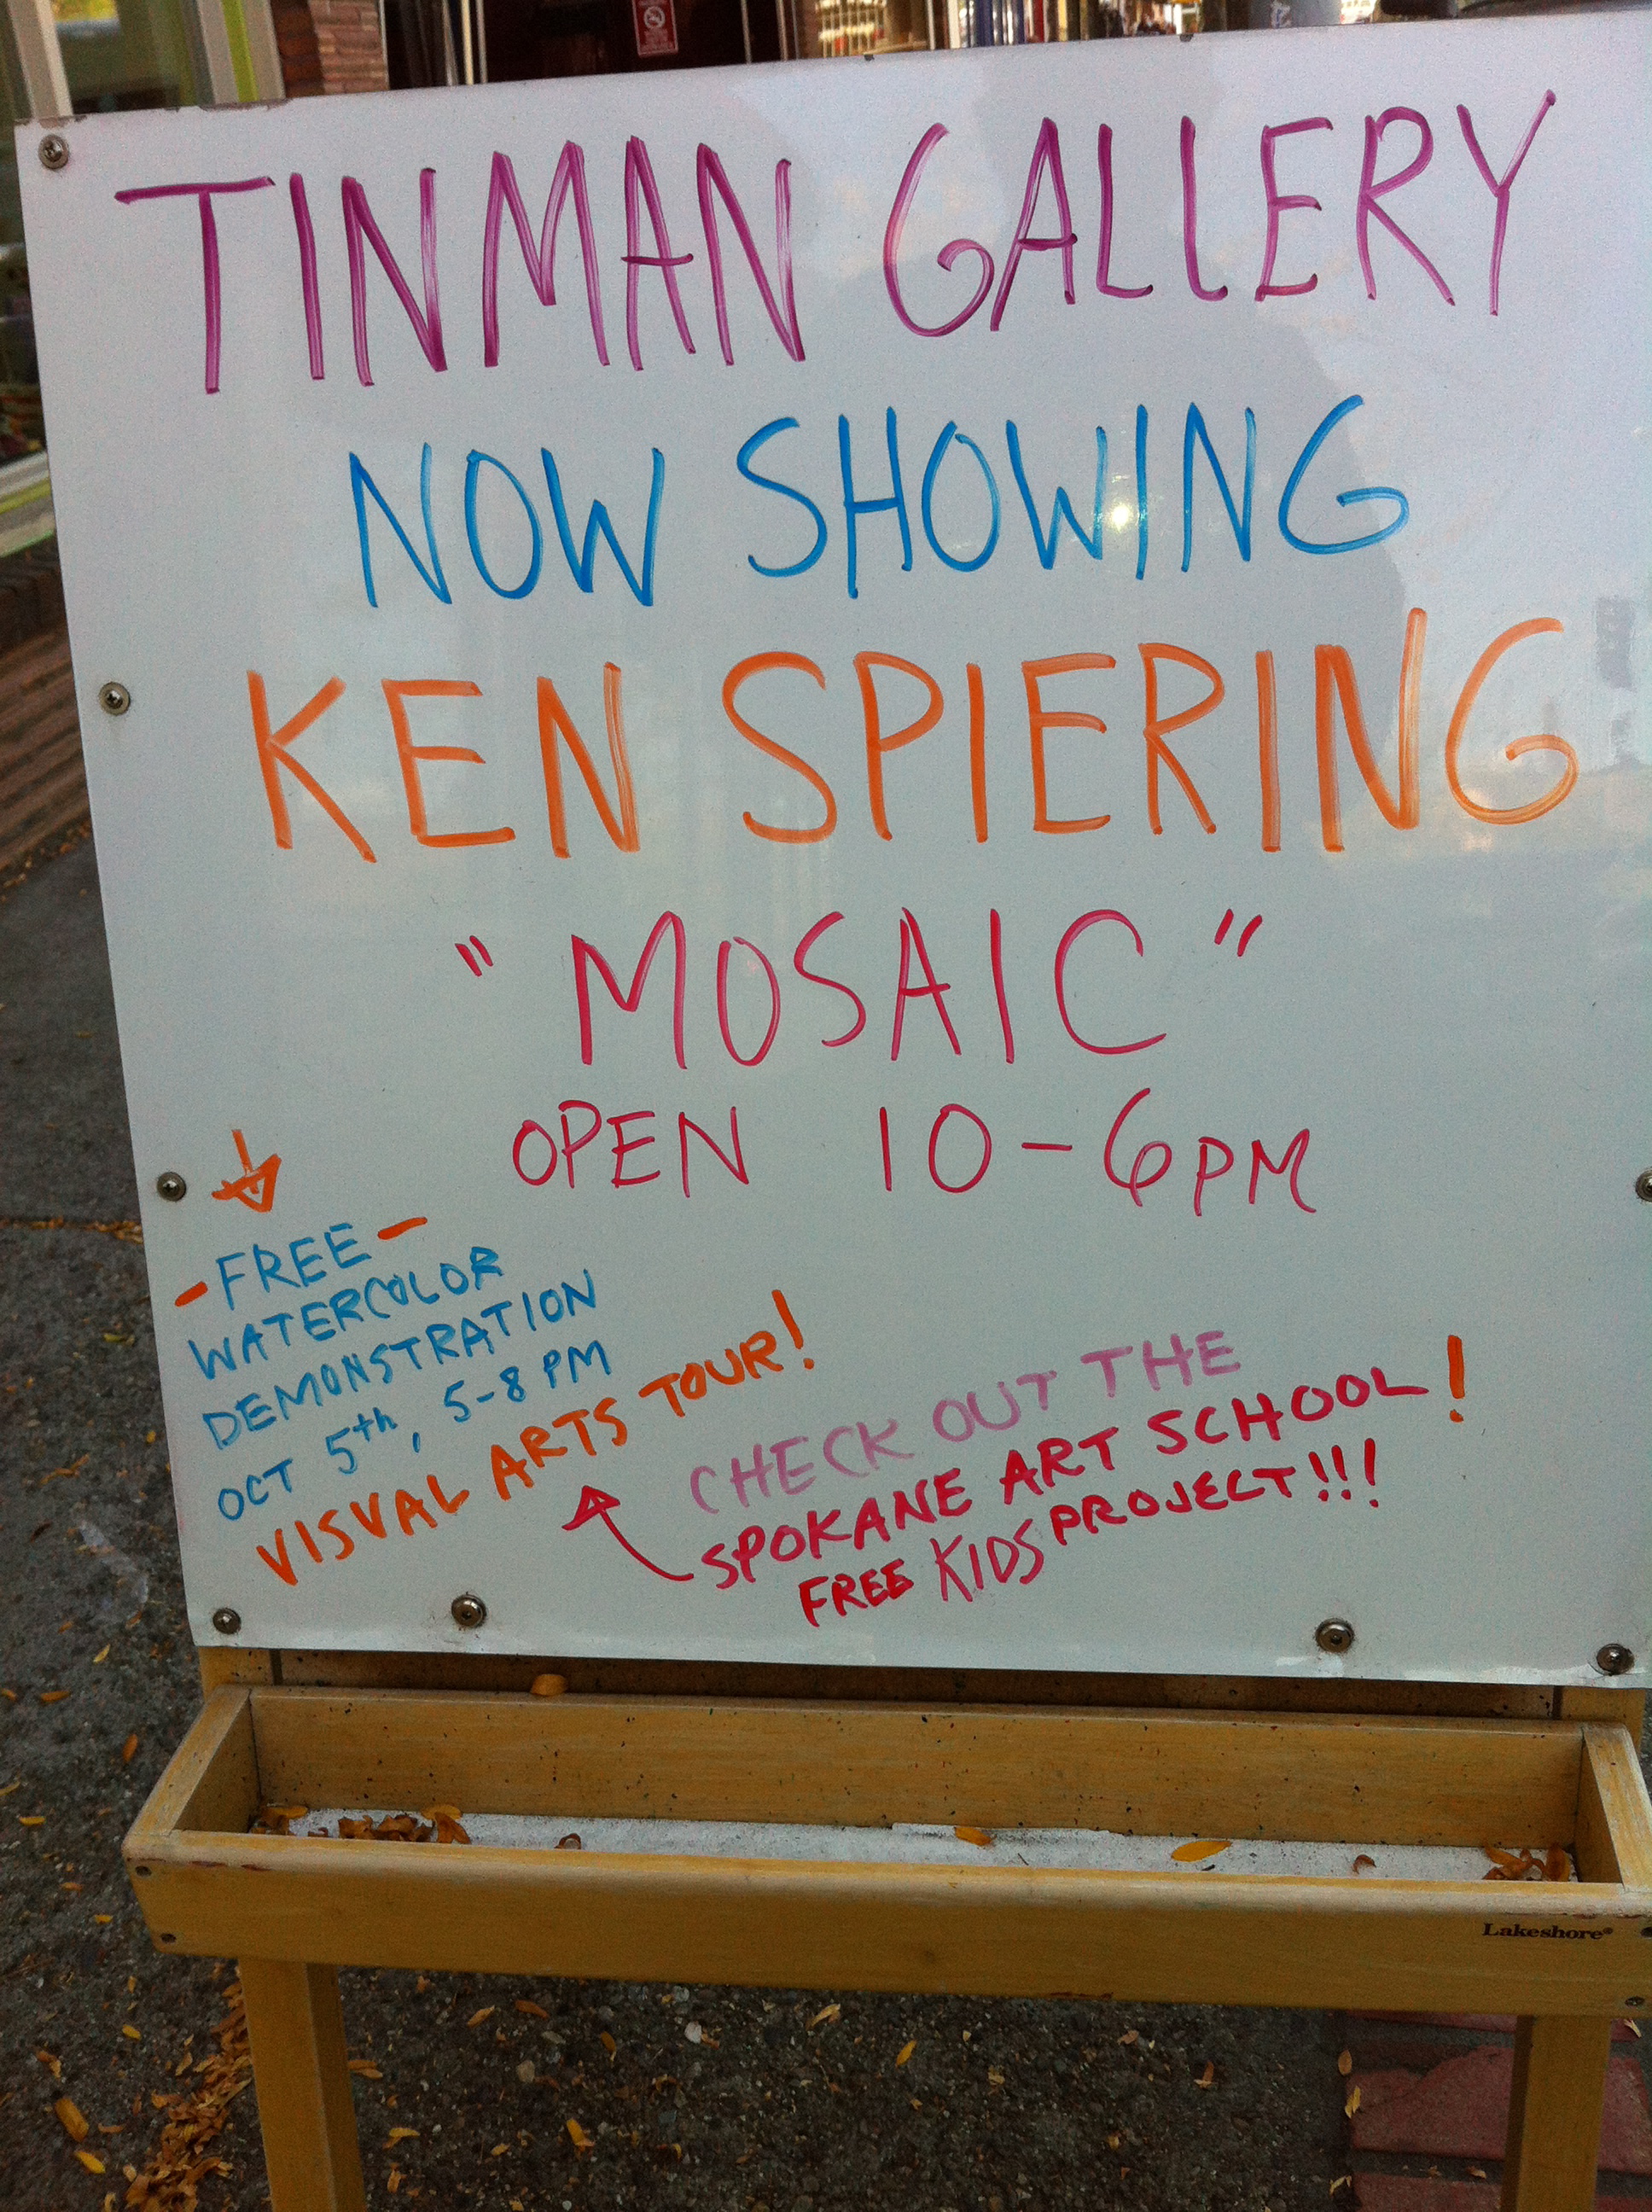 TINMAN GALLERY
NOW SHOWING
KEN SPIERING
"MOSAIC"
OPEN 10-6PM
-FREE-
WATERCOLOR
DEMONSTRATION
OCT 5th, 5-8 PM
VISUAL ARTS TOUR!
CHECK OUT THE
SPOKANE ART SCHOOL!
FREE KIDS PROJECT!!!
Lakeshore®